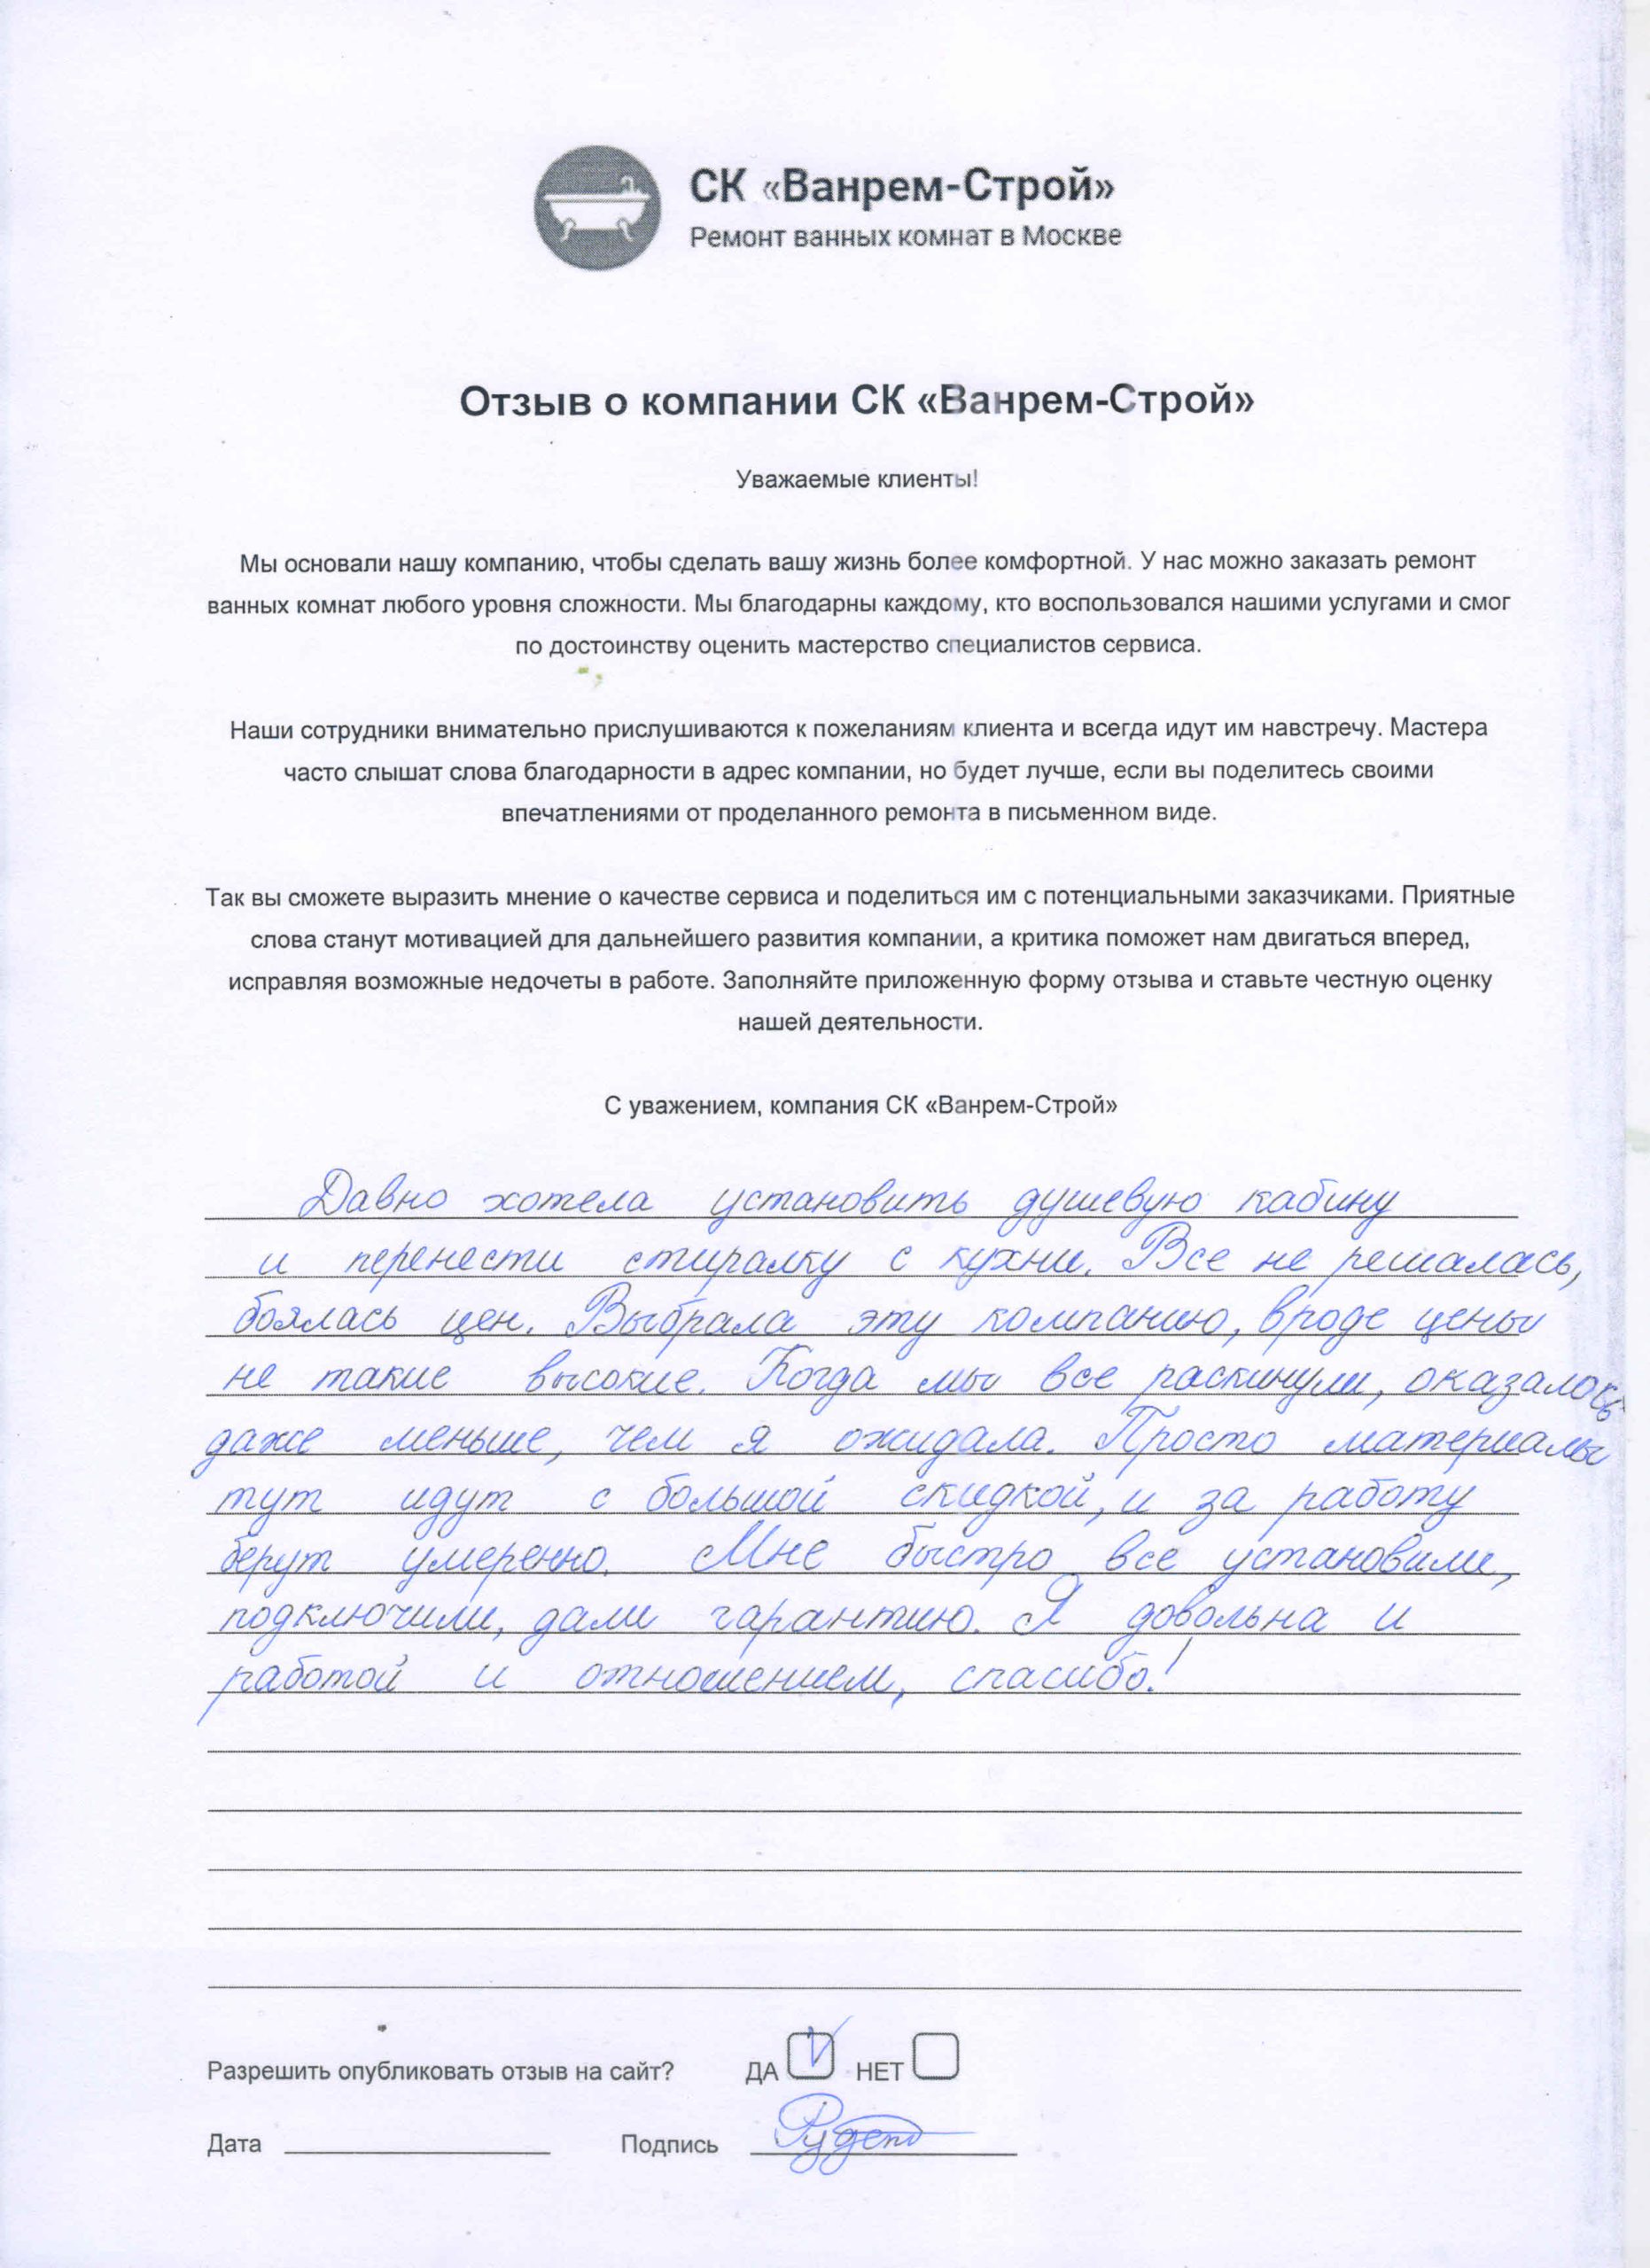 СК «Ванрем-Строй»
Ремонт ванных комнат в Москве
Отзыв о компании СК «Ванрем-Строй»
Уважаемые клиенты!
Мы основали нашу компанию, чтобы сделать вашу жизнь более комфортной. У нас можно заказать ремонт
ванных комнат любого уровня сложности. Мы благодарны каждому, кто воспользовался нашими услугами и смог
по достоинству оценить мастерство специалистов сервиса.
Наши сотрудники внимательно прислушиваются к пожеланиям клиента и всегда идут им навстречу. Мастера
часто слышат слова благодарности в адрес компании, но будет лучше, если вы поделитесь своими
впечатлениями от проделанного ремонта в письменном виде.
Так вы сможете выразить мнение о качестве сервиса и поделиться им с потенциальными заказчиками. Приятные
слова станут мотивацией для дальнейшего развития компании, а критика поможет нам двигаться вперед,
исправляя возможные недочеты в работе. Заполняйте приложенную форму отзыва и ставьте честную оценку
нашей деятельности.
С уважением, компания СК «Ванрем-Строй»
Давно хотела установить душевую кабину
и перенести стиралку с кухни. Все не решалась,
боялась цен. Выбрала эту компанию, вроде цены
не такие высокие. Когда мы все раскинули, оказалось
даже меньше, чем я ожидала. Просто материалы
тут идут с большой скидкой, и за работу
берут умеренно. Мне быстро все установили,
подключили, дали гарантию. Я довольна и
работой и отношением, спасибо!
Разрешить опубликовать отзыв на сайт? ДА НЕТ
Дата Подпись